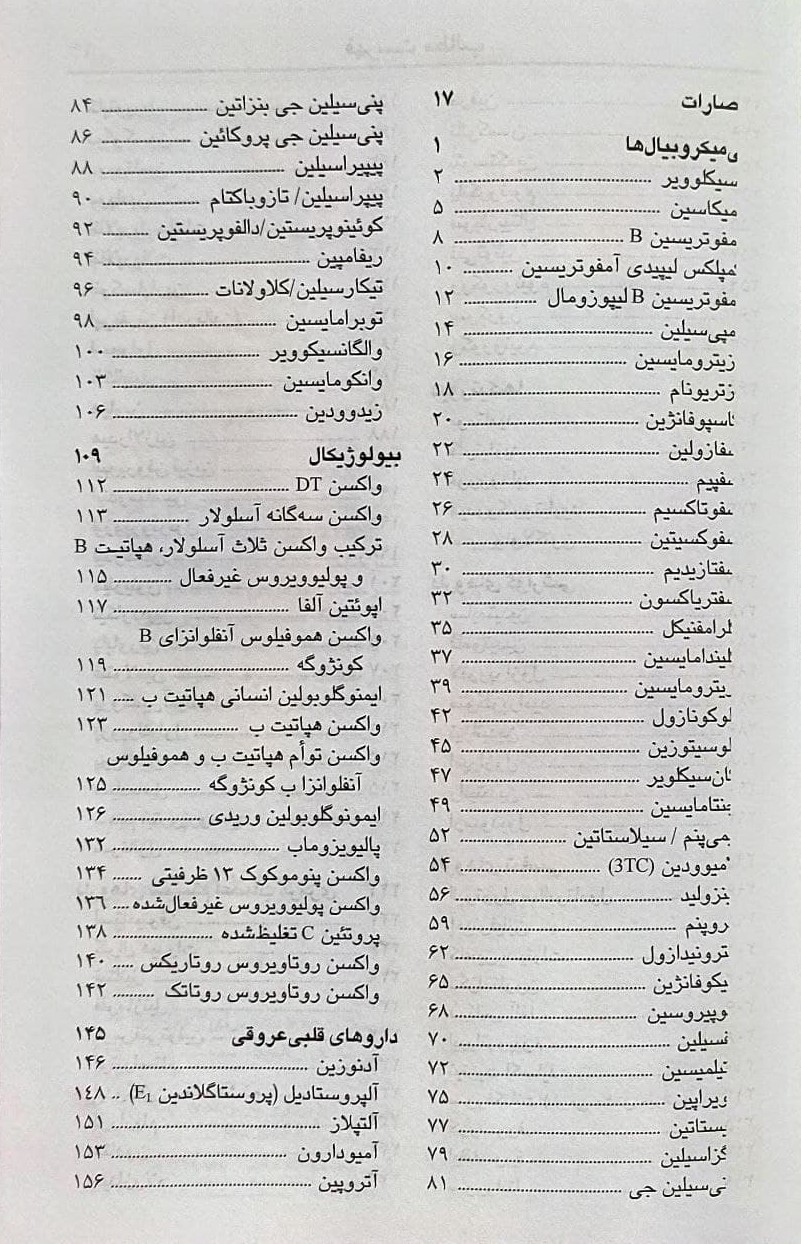 صارات ۱۷
ی‌میکروبیال‌ها ۱
سیکلوویر ۲
میکاسین ۵
مفوتریسین B ۸
مپلکس لیپیدی آمفوتریسین ۱۰
مفوتریسین B لیپوزومال ۱۲
مپی‌سیلین ۱۴
زیترومایسین ۱۶
زتریونام ۱۸
اسپوفانژین ۲۰
فازولین ۲۲
فپیم ۲۴
فوتاکسیم ۲۶
فوکسیتین ۲۸
فتازیدیم ۳۰
فتریاکسون ۳۲
لرامفنیکل ۳۵
لیندامایسین ۳۷
ریترومایسین ۳۹
لوکونازول ۴۲
لوسیتوزین ۴۵
ان‌سیکلویر ۴۷
نتامایسین ۴۹
می‌پنم / سیلاستاتین ۵۲
میوودین (3TC) ۵۴
نزولید ۵۶
روپنم ۵۹
ترونیدازول ۶۲
یکوفانژین ۶۵
وپیروسین ۶۸
فسیلین ۷۰
تیلمیسین ۷۲
ویراپین ۷۵
یستاتین ۷۷
گزاسیلین ۷۹
نی‌سیلین جی ۸۱
پنی‌سیلین جی بنزاتین ۸۴
پنی‌سیلین جی پروکائین ۸۶
پیپیراسیلین ۸۸
پیپراسیلین/ تازوباکتام ۹۰
کوئینوپریستین/دالفوپریستین ۹۲
ریفامپین ۹۴
تیکارسیلین/کلاولانات ۹۶
توبرامایسین ۹۸
والگانسیکوویر ۱۰۰
وانکومایسین ۱۰۳
زیدوودین ۱۰۶
بیولوژیکال ۱۰۹
واکسن DT ۱۱۲
واکسن سه‌گانه آسلولار ۱۱۳
ترکیب واکسن ثلاث آسلولار، هپاتیت B
و پولیوویروس غیرفعال ۱۱۵
اپوئتین آلفا ۱۱۷
واکسن هموفیلوس آنفلوانزای B
کونژوگه ۱۱۹
ایمنوگلوبولین انسانی هپاتیت ب ۱۲۱
واکسن هپاتیت ب ۱۲۳
واکسن توأم هپاتیت ب و هموفیلوس
آنفلوانزا ب کونژوگه ۱۲۵
ایمونوگلوبولین وریدی ۱۲۶
پالیویزوماب ۱۳۲
واکسن پنوموکوک ۱۳ ظرفیتی ۱۳۴
واکسن پولیوویروس غیرفعال‌شده ۱۳٦
پروتئین C تغلیظ‌شده ۱۳۸
واکسن روتاویروس روتاریکس ۱۴۰
واکسن روتاویروس روتاتک ۱۴۲
داروهای قلبی‌عروقی ۱۴۵
آدنوزین ۱۴۶
آلپروستادیل (پروستاگلاندین E₁) ۱٤۸
آلتپلاز ۱۵۱
آمیودارون ۱۵۳
آتروپین ۱۵۶